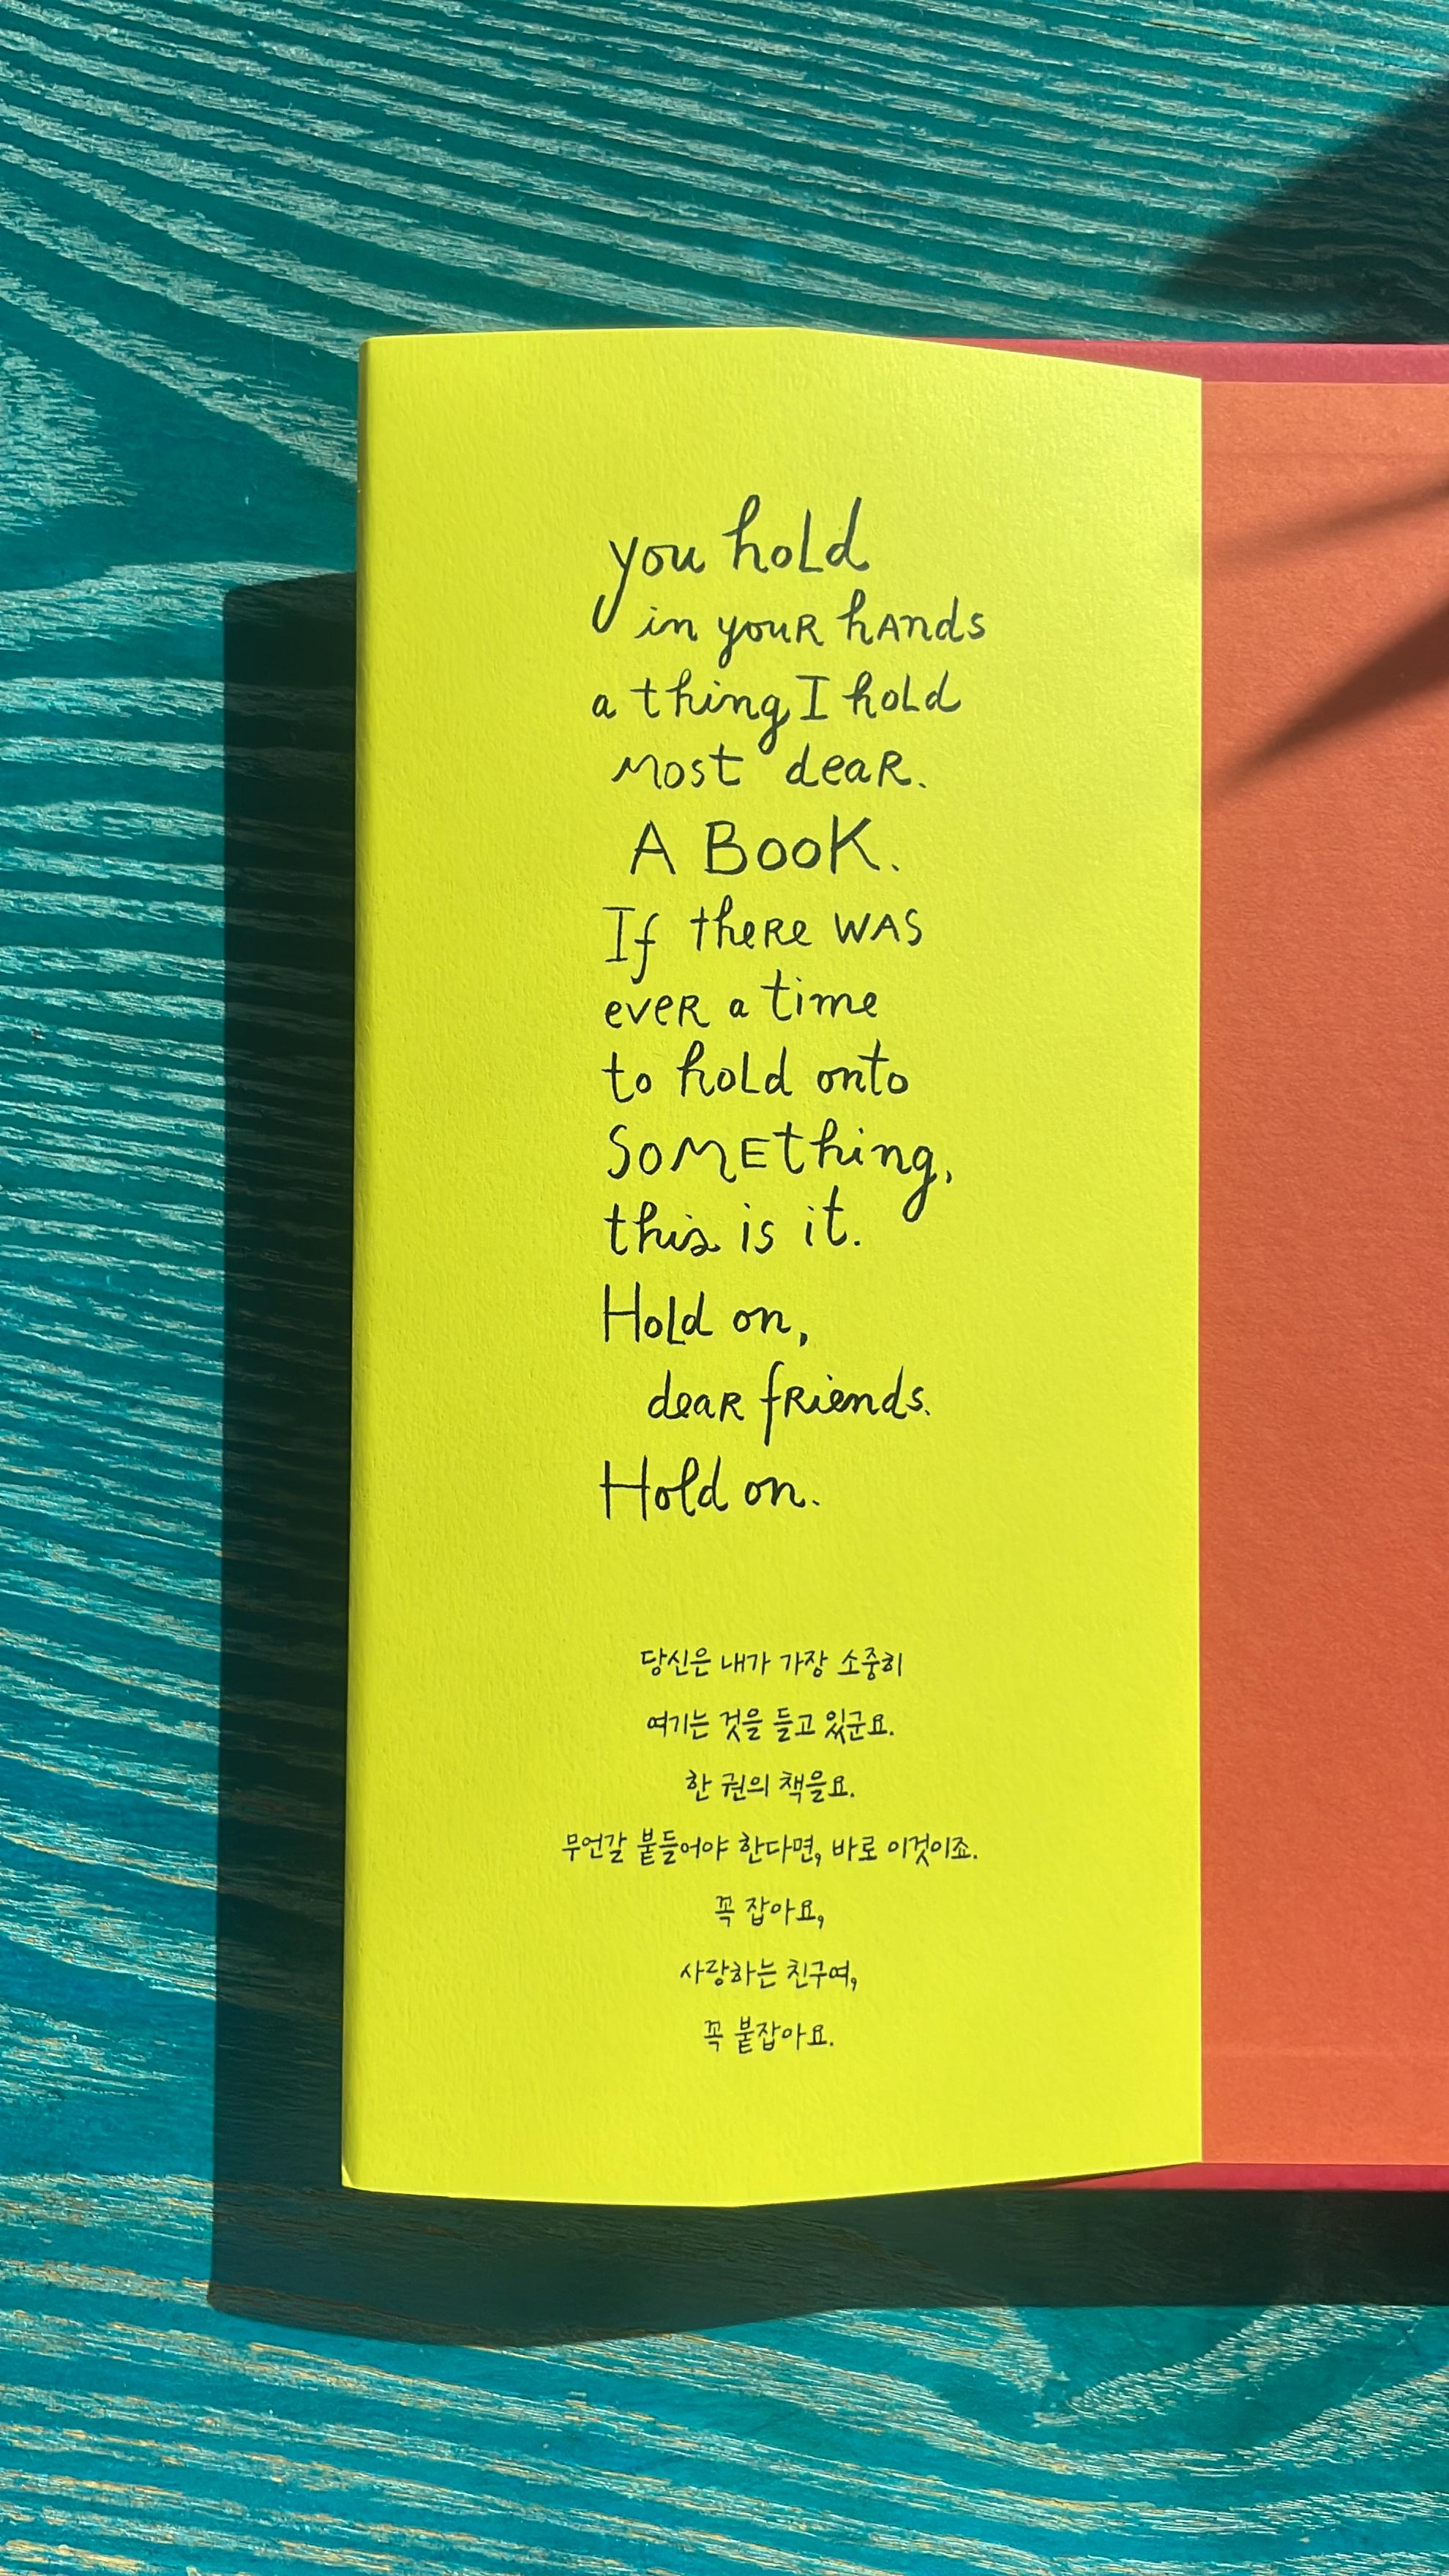 you hold
in youR hAnds
a thing I hold
most deaR.
A BOOK.
If theRe WAS
eveR a time
to hold onto
SOMEthing,
this is it.
Hold on,
deaR fRiends.
Hold on.
당신은 내가 가장 소중히
여기는 것을 들고 있군요.
한 권의 책을요.
무언갈 붙들어야 한다면, 바로 이것이죠.
꼭 잡아요,
사랑하는 친구여,
꼭 붙잡아요.